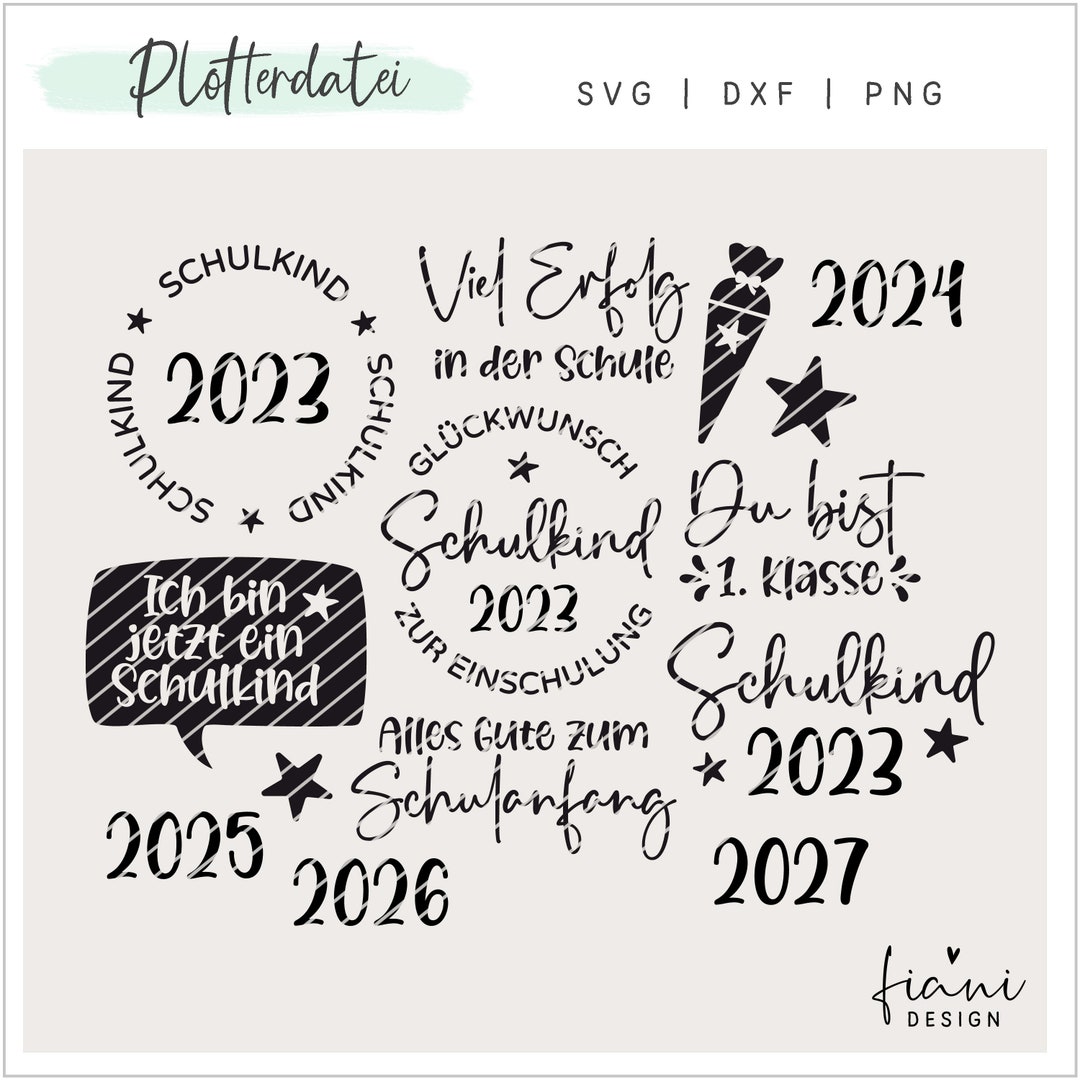 Plotterdatei
SVG | DXF | PNG
SCHULKIND
SCHULKIND
SCHULKIND
SCHULKIND
SCHULKIND
2023
Viel Erfolg
in der Schule
2024
GLÜCKWUNSCH
Schulkind
2023
ZUR EINSCHULUNG
Du bist
1. Klasse
Ich bin
jetzt ein
Schulkind
Schulkind
2023
Alles Gute zum
Schulanfang
2025
2026
2027
fiani
DESIGN